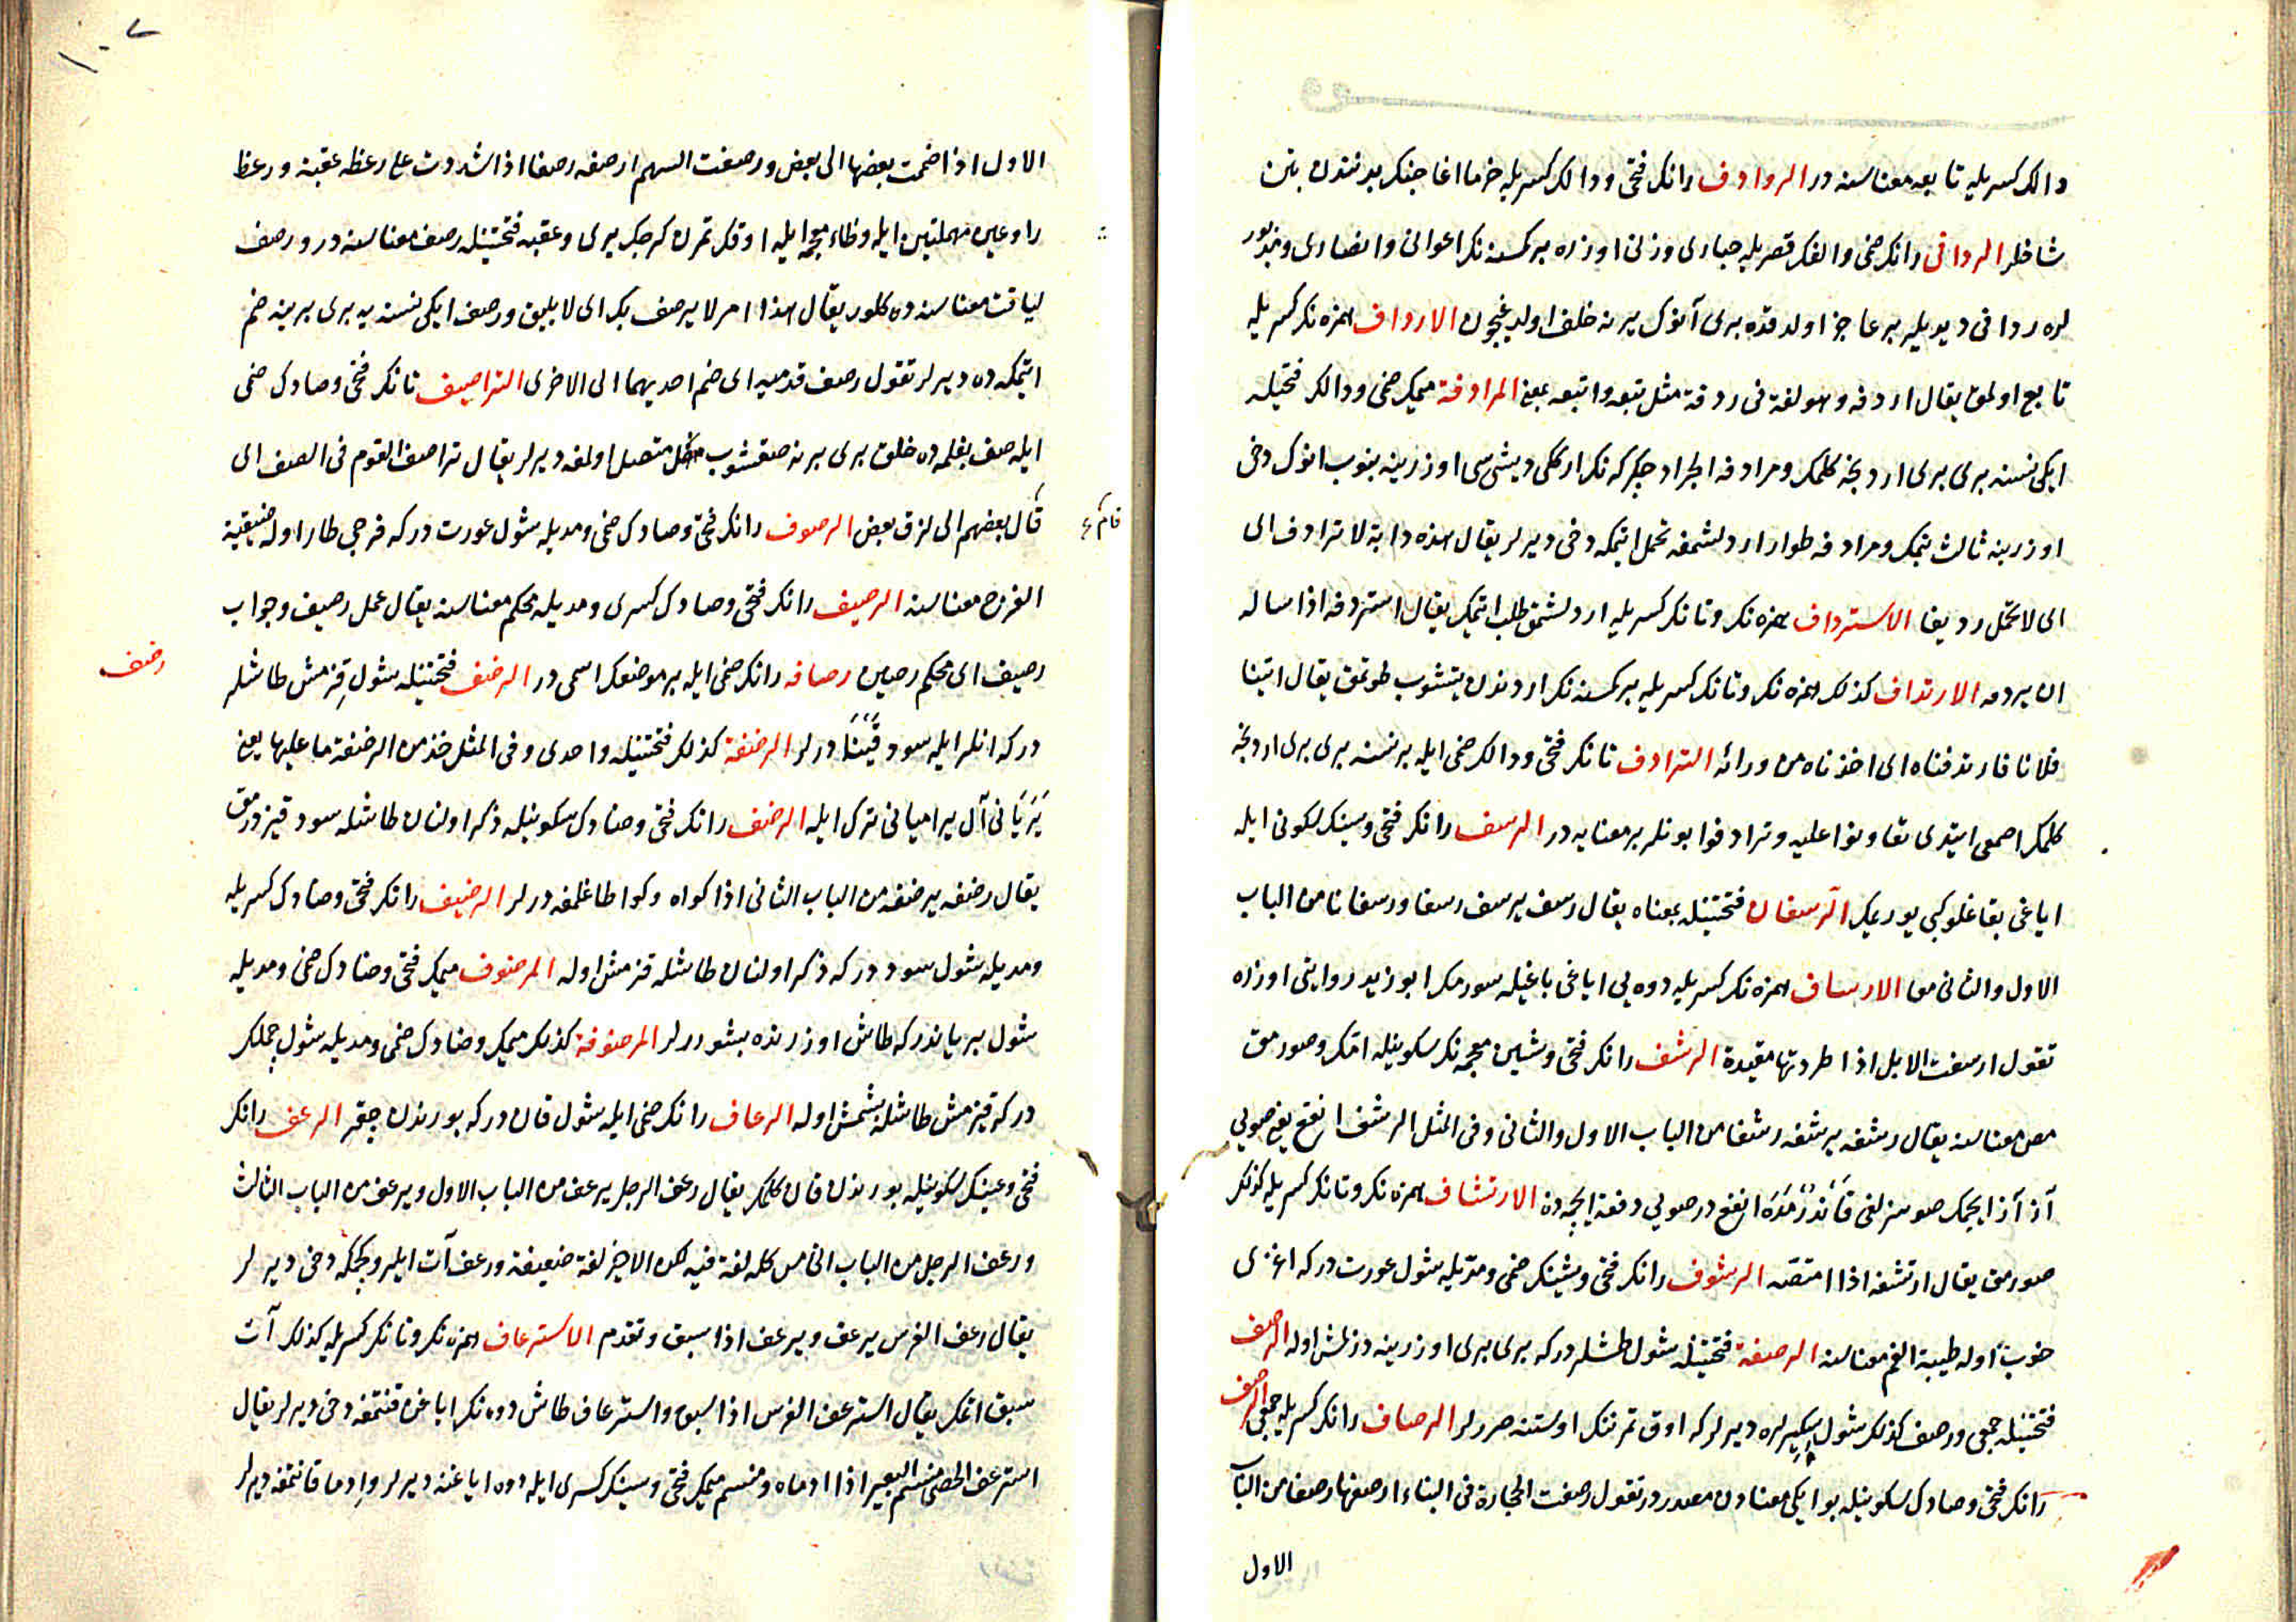 دالك كسريله تابعه معناسنه در الروادف رانك فتحى ودالك كسريله خرما اغاجنك بدنندن بتن
شاخلر الردافى رانك ضمى والفك قصريله حبارى وزنى اوزره بر كمسنه نك اعوانى وانصارى
لره ردافى ديو يلير بر عاجز اولدقده برى آنوك يرنه خلف اولديغيچون الارداف همزه نك كسريله
تابع اولمق يقال اردفه وهو لغة فى ردفه مثل تبعه واتبعه بمعنى المرادفة ميمك ضمى ودالك فتحيله
ايكى نسنه برى برى اردنجه كلمك ومرادفة الجراد چكركه نك ارككى ديشيسى اوزرينه بنوب انوك دخى
اوزرينه ثالث بنمك ومرادفه طوار اردلشمغه تحمل ايتمكه دخى ديرلر يقال هذه دابة لا ترادف اى
اى لا تحمل رديفا الاسترداف همزه نك وتانك كسريله اردلشمق طلب ايتمك يقال استردفه اذا ساله
ان يردفه الارتداف كذلك همزه نك وتانك كسريله بر كمسنه نك اردندن يتشوب طوتمق يقال اتينا
فلانا فارتدفناه اى اخذناه من ورائه الترادف تانك فتحى ودالك ضمى ايله بر نسنه برى برى اردنجه
كلمك اصمعى ايتدى تعاونوا عليه وترادفوا بونلر بر معنايه در الرسف رانك فتحى وسينك سكونى ايله
اياغى بغالو كبى يوريمك الرسفان فتحتينله بمعناه يقال رسف يرسف رسفا ورسفانا من الباب
الاول والثانى معا الارساف همزه نك كسريله دوه يى اياغى باغيله سورمك ابو زيد روايتى اوزره
تقول ارسفت الابل اذا طردتها مقيدة الرشف رانك فتحى وشين معجمه نك سكونيله امك وصورمق
مص معناسنه يقال رشفه يرشفه رشفا من الباب الاول والثانى وفى المثل الرشف انقع يعنى صويى
آز آز ايچمك صوسزلغى قاندرمقده انفع در صويى دفعة ايچمه دن الارتشاف همزه نك وتانك كسريله كذلك
صورمق يقال ارتشفه اذا امتصه الرشوف رانك فتحى وشينك ضمى ومديله شول عورت دركه اغزى
خوب اوله طيبة الفم معناسنه الرصفة فتحتينله شول طاشلر دركه برى برى اوزرينه دزلمش اوله الرصف
فتحتينله جمعى ورصف كذلك شول سكيرلره ديرلر كه اوق تمرننك اوستنه صررلر الرصاف رانك كسريله جمعى الرصف
رانك فتحى وصادك سكونيله بو ايكى معنادن مصدر در تقول رصفت الحجارة فى البناء ارصفها رصفا من الباب
الاول
١٠٧
الاول اذا ضممت بعضها الى بعض ورصفت السهم ارصفه رصفا اذا شددت على رعظه عقبة ورعظ
را وعين مهملتين ايله وظاء معجمه ايله اوقك تمرن كرجك يرى وعقبه فتحتينله رصف معناسنه در ورصف
لياقت معناسنه ده كلور يقال هذا امر لا يرصف بك اى لا يليق ورصف ايكى نسنه يه برى برينه ضم
ايتمكه ده ديرلر تقول رصف قدميه اى ضم احديهما الى الاخرى التراصف تانك فتحى وصادك ضمى
ايله صف بغلمه ده خلق برى برنه صقشوب متصل اولمغه ديرلر يقال تراصف القوم فى الصف اى
قام بعضهم الى لزق بعض الرصوف رانك فتحى وصادك ضمى ومديله شول عورت دركه فرجى طار اوله ضيقة
الفرج معناسنه الرصيف رانك فتحى وصادك كسرى ومديله محكم معناسنه يقال عمل رصيف وجواب
رصيف اى محكم رصين رصافه رانك ضمى ايله بر موضعك اسمى در الرضف فتحتينله شول قزمش طاشلر
رضف
دركه انلر ايله سود قينادرلر الرضفة كذلك فتحتينله واحدى وفى المثل خذ من الرضفة ما عليها يعنى
يريانى آل بيراميانى ترك ايله الرضف رانك فتحى وضادك سكونيله ذكر اولنان طاشله سود قيزدرمق
يقال رضفه يرضفه من الباب الثانى اذا كواه وكوا طاغلمغه درلر الرضيف رانك فتحى وضادك كسريله
ومديله شول سود دركه ذكر اولنان طاشله قزمش اوله المرضوف ميمك فتحى وضادك ضمى ومديله
شول بريان دركه طاش اوزرنده بشوررلر المرضوفة كذلك ميمك وضادك ضمى ومديله شول چملك
دركه قيزمش طاشله بشمش اوله الرعاف رانك ضمى ايله شول قان دركه بورندن چقر الرعف رانك
فتحى وعينك سكونيله بورندن قان كلمك يقال رعف الرجل يرعف من الباب الاول ويرعف من الباب الثالث
ورعف الرجل من الباب الخامس كله لغة فيه لكن الاخير لغة ضعيفة ورعف آت ايلرو كچمكه دخى ديرلر
يقال رعف الفرس يرعف ويرعف اذا سبق وتقدم الاسترعاف همزه نك وتانك كسريله كذلك آت
سبق اتمك يقال استرعف الفرس اذا سبق واسترعاف طاش دوه نك اياغن قنتمغه دخى ديرلر يقال
استرعف الحصى منسم البعير اذا ادماه ومنسم ميمك فتحى وسينك كسرى ايله دوه اياغنه ديرلر وادما قانتمغه ديرلر